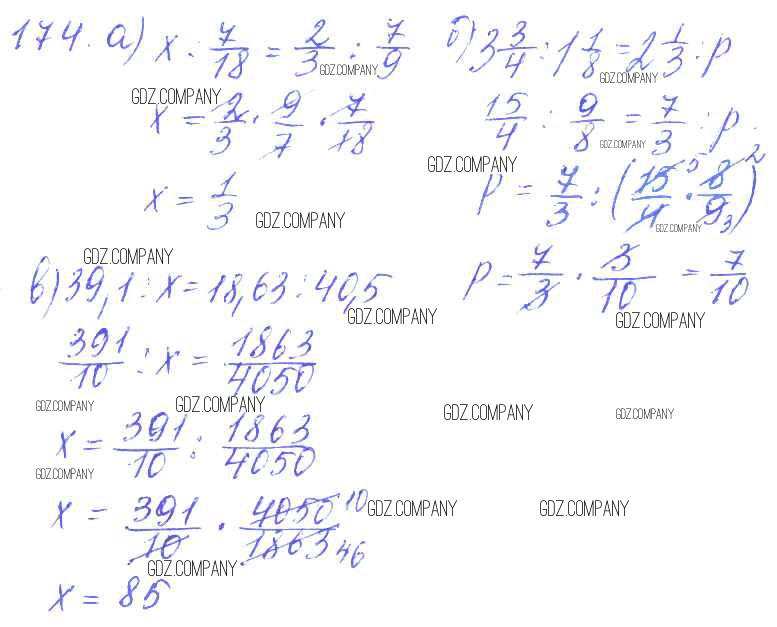 174. а) x : 7/18 = 2/3 : 7/9
GDZ.COMPANY
GDZ.COMPANY
x = 2/3 · 9/7 · 7/18
x = 1/3
GDZ.COMPANY
б) 3 3/4 : 1 1/8 = 2 1/3 : p
GDZ.COMPANY
15/4 : 9/8 = 7/3 : p
GDZ.COMPANY
GDZ.COMPANY
p = 7/3 : (15/4 · 8/9) 5 2 3
GDZ.COMPANY
p = 7/3 · 3/10 = 7/10
GDZ.COMPANY
GDZ.COMPANY
в) 39,1 : x = 18,63 : 40,5
GDZ.COMPANY
391/10 : x = 1863/4050
GDZ.COMPANY
GDZ.COMPANY
GDZ.COMPANY
GDZ.COMPANY
x = 391/10 : 1863/4050
GDZ.COMPANY
x = 391/10 · 4050/1863 10 46
GDZ.COMPANY
GDZ.COMPANY
GDZ.COMPANY
x = 85